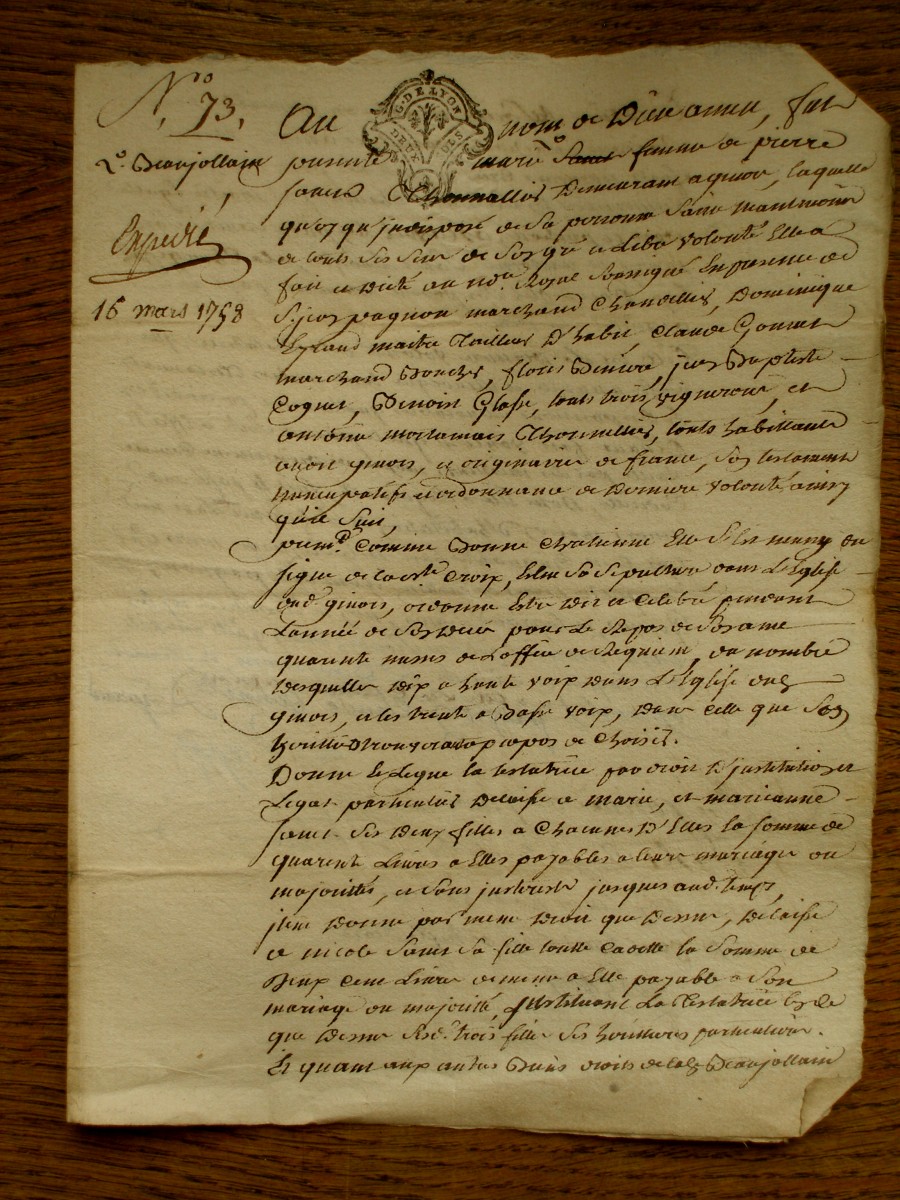 N.o 73.
L.s Beaujollain
Expedié
16 mars 1758
G. DE LYON
DEUX SOLS
Au nom de Dieu amen, fut
presente marie femme de pierre
Thonnellier Demeurant a givor, laquelle
quoy qu'indisposé de sa personne sainne
de touts ses sens de son gré a Libre volonté Elle a
fait et dicté au no.re Royal soussigné En presence de
pagnon marchand Chandellier, Dominique
maitre Tailleur D'habit, Claude Gonnet
marchand Boucher, fleuris jean Baptiste
Benoist touts trois vignerons, et
antoine Thonnellier, touts habittants
givors, et originaires de france, son testament
nuncupatif et ordonnance de Derniere volonté ainsy
qu'il suit,
prem.t Comme Bonne Chretienne Elle s'est muny du
signe de la s.te Croix, Eslit sa sepulture dans L'Eglise
dud. givors, ordonne Estre dit et Celebré pendant
L'année de son Decés pour Le Repos de son ame
quarente messes de L'office de Requiem, du nombre
Desquelles Dix a haute voix Dans L'Eglise dud.
givors, et les trente a Basse voix, Dans Celle que son
heritier trouvera a propos de Choisir.
Donne et Legue la testatrice par droit D'institution et
Legat particulier Delaisse a marie, et marianne
ses Deux filles a Chacunes D'Elles la somme de
quarente Livres a Elles payables a leurs mariage ou
majorittés, et sans jnterests jusques aud. temps,
jtem Donne par meme Droit que Dessus, Delaisse
a nicole sa fille toutte Cadette la somme de
Deux Cent Livres de meme a Elle payable a son
mariage ou majorité, jnstituant La Testatrice
que Dessus sesd. trois filles ses heritieres particulieres.
Et quant aux autres Biens droits de lad. Beaujollain